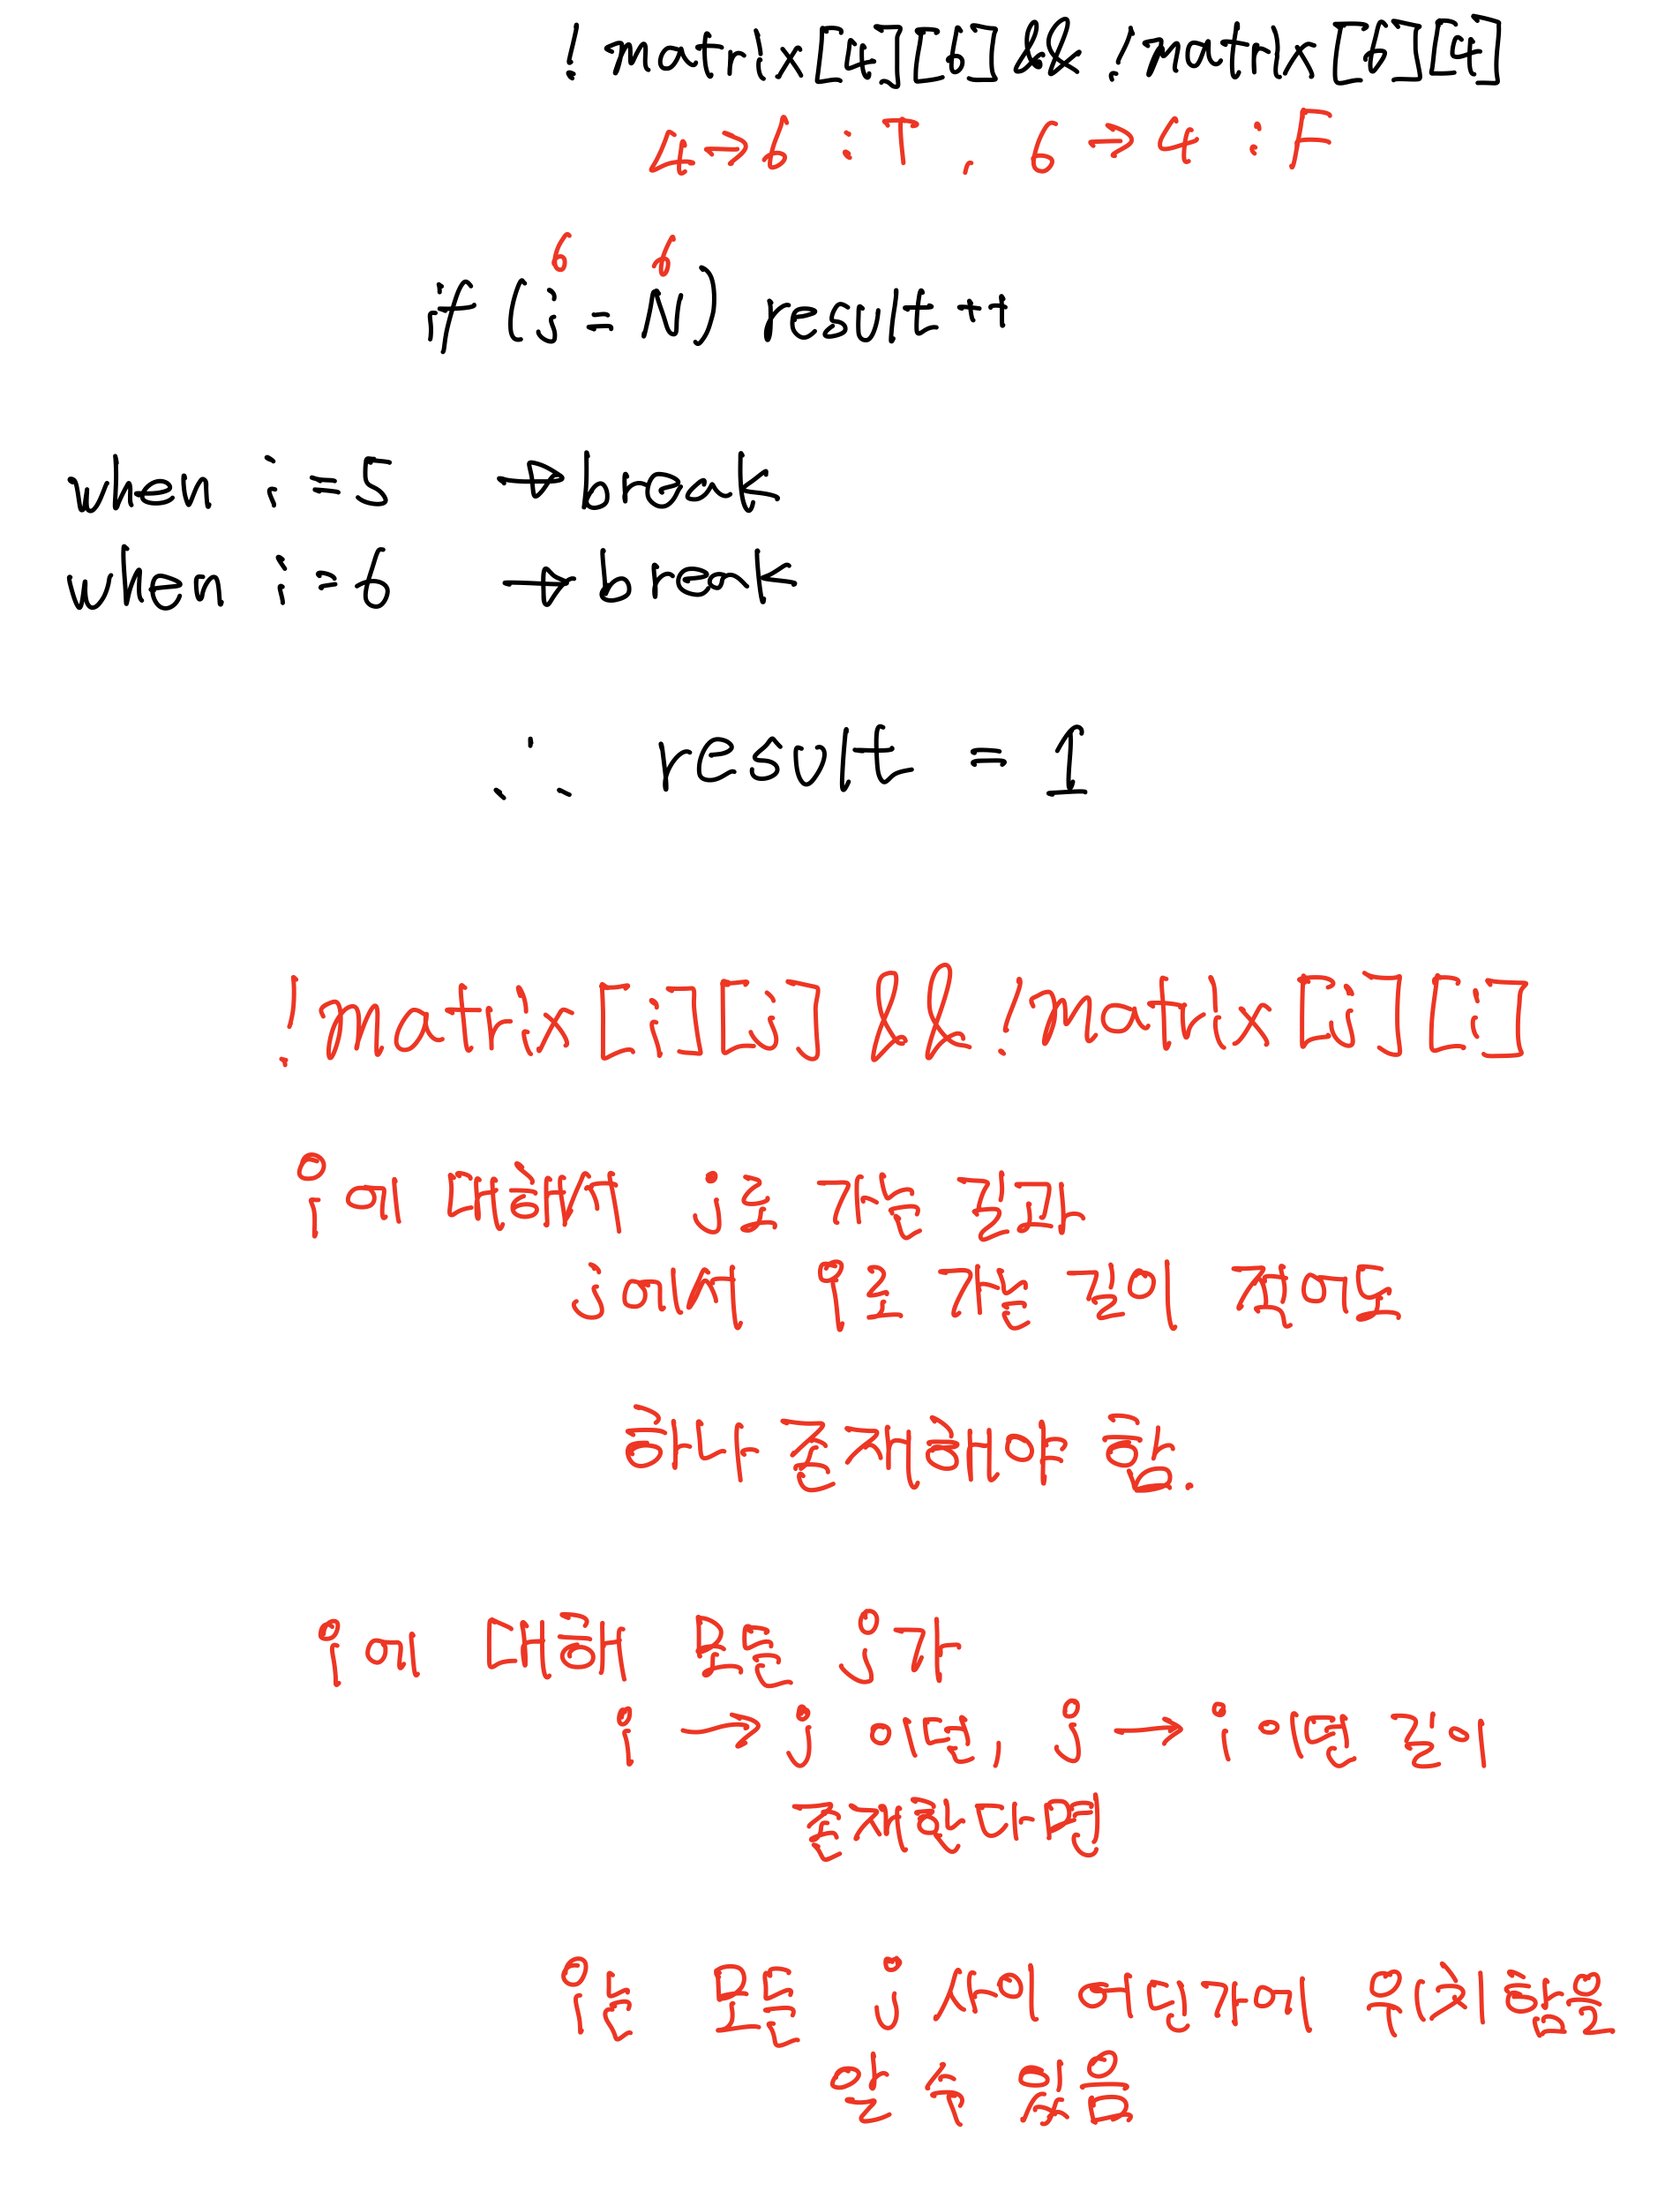 !matrix[4][6] && !matrix[6][4]
4→6 : T , 6→4 : F
6 6
if (j = N) result ++
when i = 5 → break
when i = 6 → break
∴ result = 1
!matrix[i][j] && !matrix[j][i]
i에 대해서 j로 가는 길과
j에서 i로 가는 길이 적어도
하나 존재해야 함.
i에 대해 모든 j가
i → j 이던, j → i 이던 길이
존재한다면
i는 모든 j 사이 어딘가에 위치함을
알 수 있음